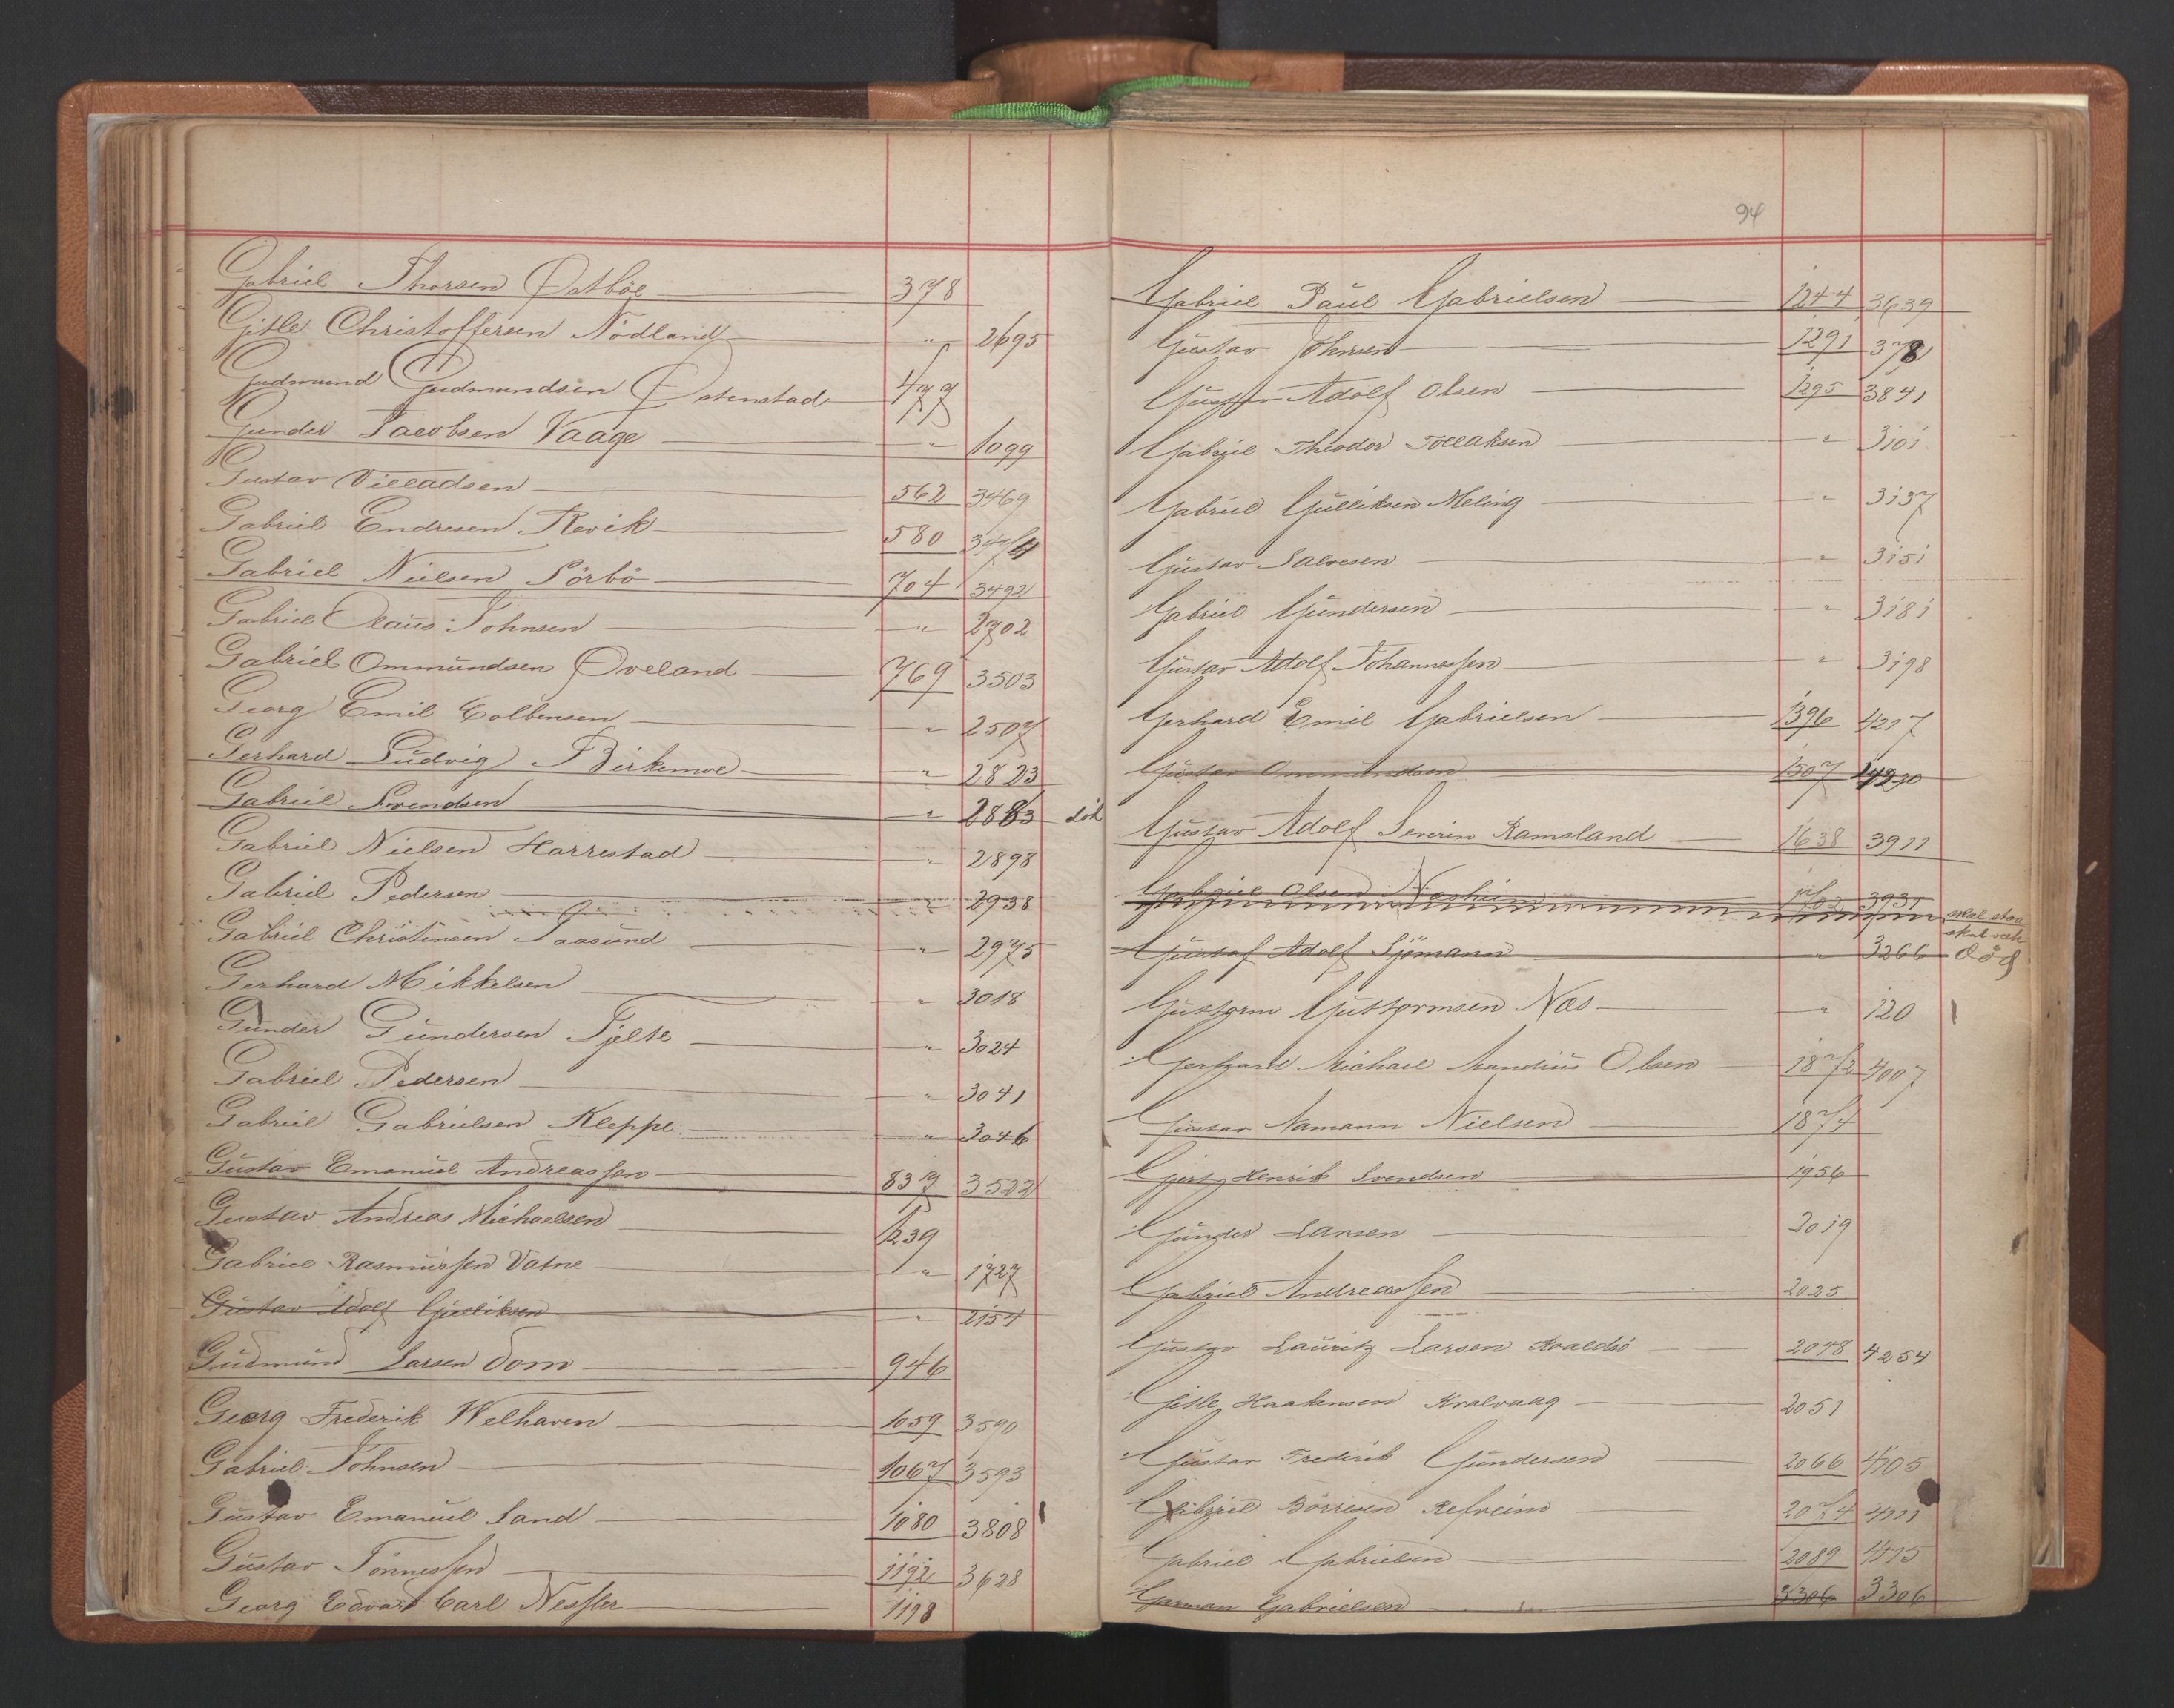 Gabriel Thorsen Østbøe 378
Gitle Christoffersen Nödland " 2695
Gudmund Gudmundsen Østenstad 477
Gunder Jacobsen Vaage " 1099
Gustav Villadsen 562 3469
Gabriel Endresen Revik 580
Gabriel Nielsen Sörbö 704 3492
Gabriel Olaus Johnsen " 2702
Gabriel Ommundsen Øveland 769 3503
Georg Emil Colbensen " 2507
Gerhard Ludvig Birkemoe " 2823
Gabriel Svendsen " 2883 död
Gabriel Nielsen Harrestad " 2898
Gabriel Pedersen " 2938
Gabriel Christensen Taasund " 2975
Gerhard Mikkelsen " 3018
Gunder Gundersen Tjelte " 3024
Gabriel Pedersen " 3041
Gabriel Gabrielsen Kleppe " 3046
Gustav Emanuel Andreassen 837 3522
Gustav Andreas Michaelsen 1239
Gabriel Rasmussen Vatne " 1727
Gustav Adolf Gulliksen " 2154
Gudmund Larsen Dom 946
Georg Frederik Welhaven 1059 3590
Gabriel Johnsen 1067 3593
Gustav Emanuel Sand 1080 3808
Gustav Tönnessen 1192 3628
Georg Edvard Carl Nessler 1198
94
Gabriel Paul Gabrielsen 1244 3639
Gustav Johnsen 1291
Gustav Adolf Olsen 1295 3841
Gabriel Theodor Tollaksen " 3101
Gabriel Gulliksen Meling " 3137
Gustav Salvesen " 3151
Gabriel Gundersen " 3181
Gustav Adolf Johannessen " 3198
Gerhard Emil Gabrielsen 1396 4217
Gustav Ommundsen 1507
Gustav Adolf Severin Ramsland 1638 3911
Gabriel Olsen 1702 3931 skal staa
skal
Gustaf Adolf Sjömann " 3266 död
Guttorm Guttormsen Næs " 120
Gerhard Michael Mandius Olsen 1872 4007
Gustav Namann Nielsen 1874
Gert Henrik Svendsen 1956
Gunder Larsen 2019
Gabriel Andreassen 2025
Gustav Lauritz Larsen Roaldsö 2048 4254
Gitle Haakensen Kvalvaag 2051
Gustav Frederik Gundersen 2066 4105
Gabriel Börresen Refheim 2074 4111
Gabriel Gabrielsen 2089 4115
Garman Gabrielsen 3306 3306